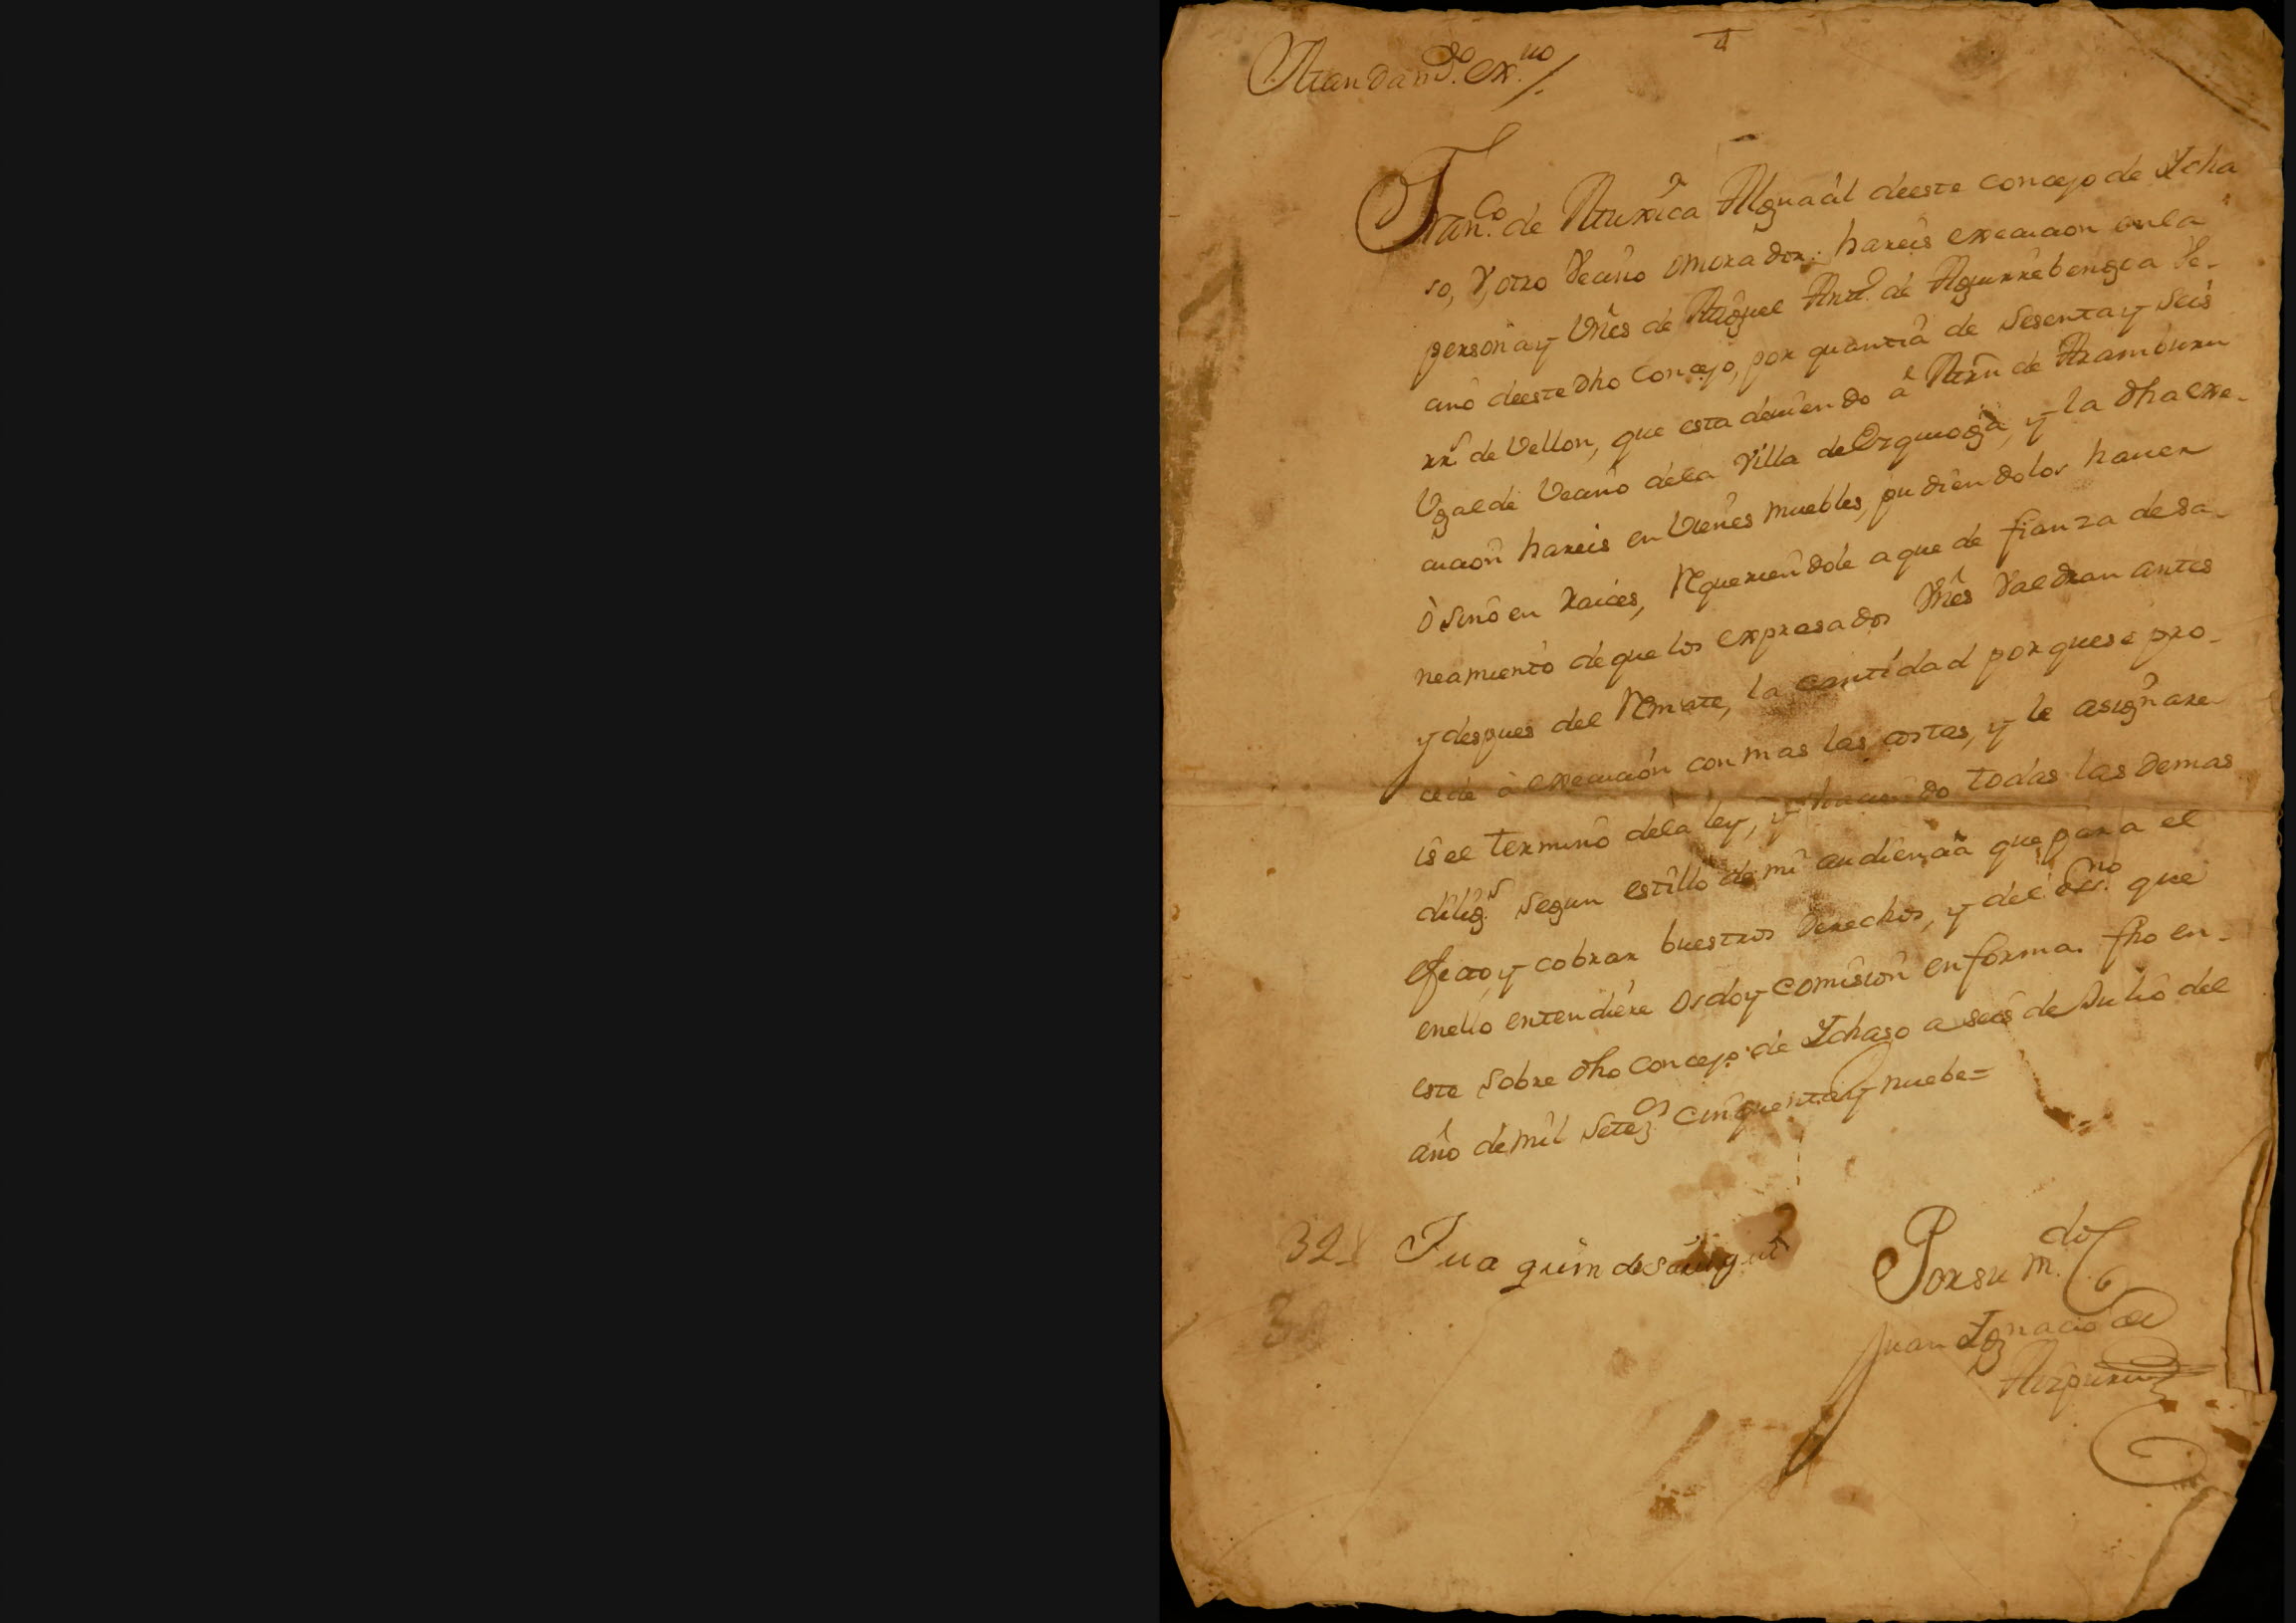 Mandam.do ex.uo /.
Fran.co de Muxica Alguacil deeste concejo de Ycha
so, Y, otro Vecino o morador: hareis execucion en la
persona y Vnes de Miguel Ant.º de Aguirrebengoa Ve-
cino deeste dho concejo, por quantia de Sesenta y Seis
rr.s de Vellon, que esta deuiendo â Mrn de Aramburu
Vgalde Vecino dela Villa de Ezquioga, y la dha exe-
cucion hareis en Vienes muebles, pudiendolos hauer
ò Sino en Raices, Requeriendole a que de fianza de sa-
neamiento de que los expresados Vnes Valdran antes
y despues del Remate, la cantidad porque se pro-
cede à execucion con mas las costas, y le asignare
is el termino dela ley, y haciendo todas las demas
dilig.s Segun estillo de mi audiencia que para el
efecto, y cobrar buestros Derechos, y del ess.no que
enello entendiere os doy comision enforma. fho en-
este Sobre dho concejo de Ychaso a seis de Julio del
año de mil Setez.os cinquenta y nuebe=
32 Juaquim de
Por su m.do
3
Juan Ygnacio de
Aizpuru